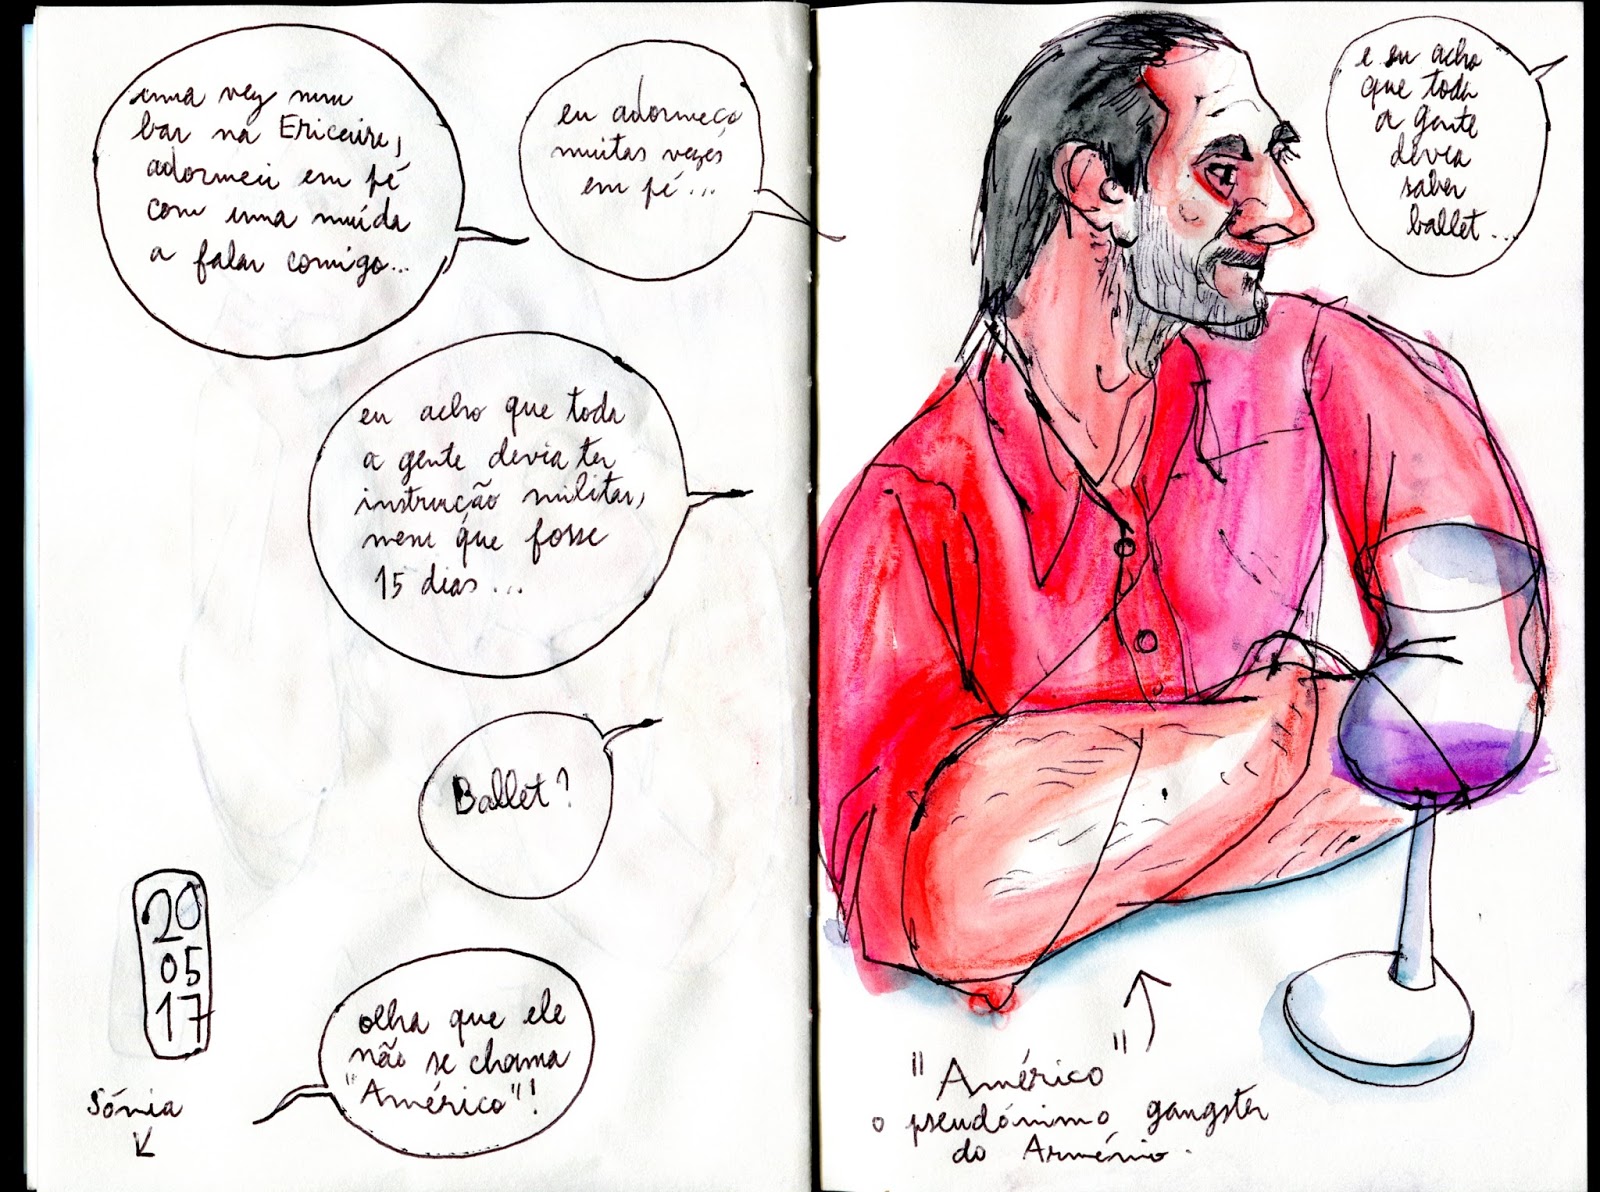 uma vez num
bar na Ericeira,
adormeci em pé
com uma miúda
a falar comigo...
eu adormeço
muitas vezes
em pé...
eu acho que toda
a gente devia ter
instrução militar,
nem que fosse
15 dias...
Ballet?
olha que ele
não se chama
"Américo"!
20
05
17
Sónia
e eu acho
que toda
a gente
devia
saber
ballet...
"Américo"
o pseudónimo gangster
do Arménio.